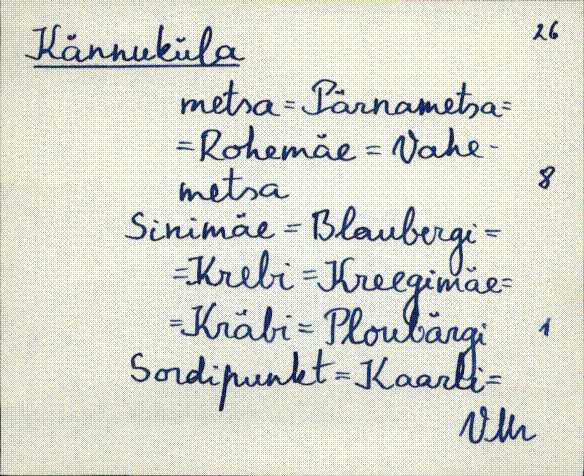 26
Kännuküla
metsa = Pärnametsa =
= Rohemäe = Vahe-
metsa 8
Sinimäe = Blaubergi =
= Krebi = Kreegimäe =
= Kräbi = Ploubärgi 1
Sordipunkt = Kaarli =